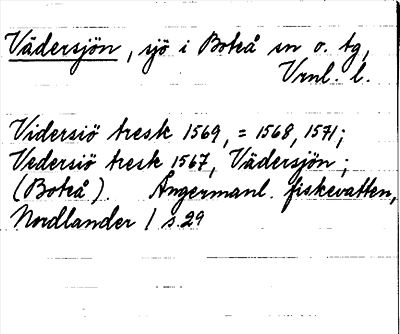 Vädersjön, sjö i Boteå sn o. tg,
Vrnl. l.
Vidersiö tresk 1569, = 1568, 1571;
Vedersiö tresk 1567, Vädersjön;
(Boteå). Ångermanl. fiskevatten,
Nordlander / s.29